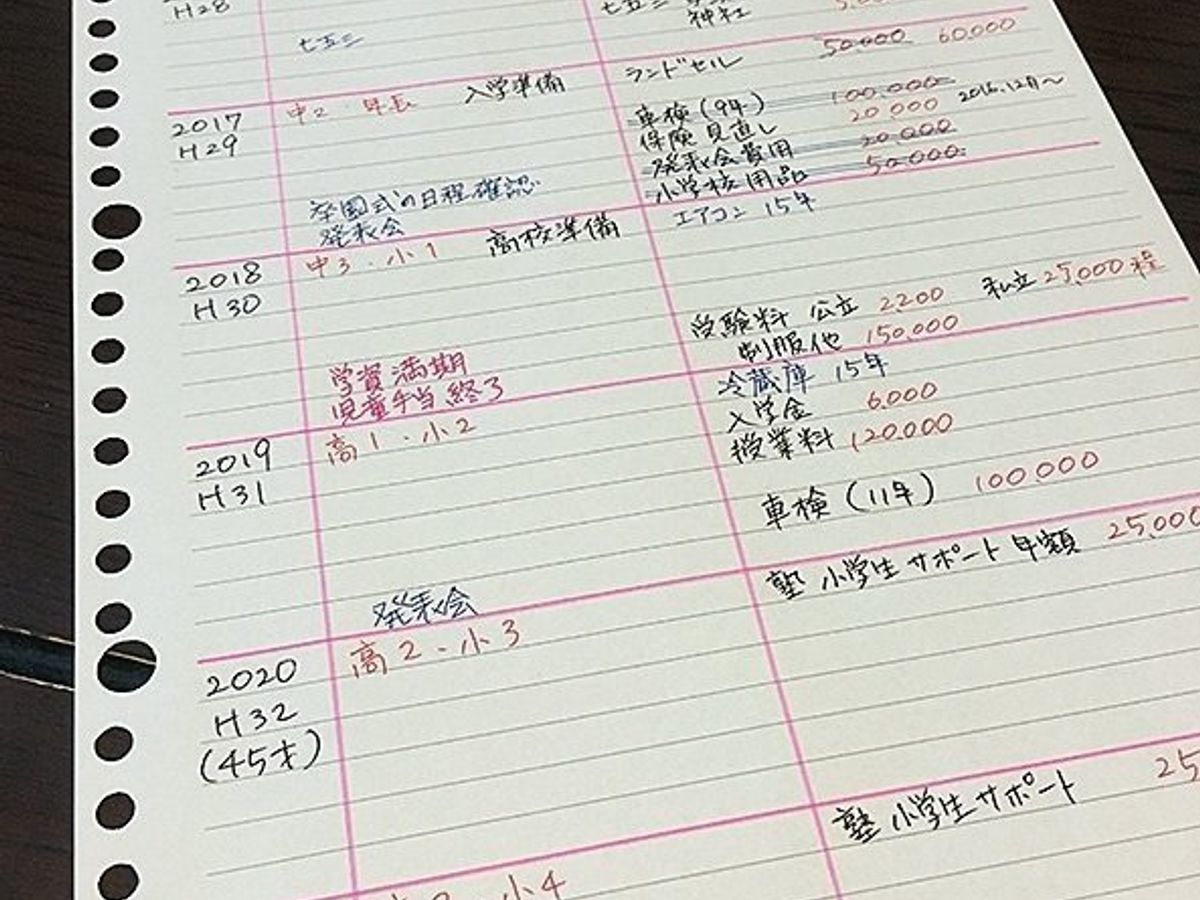 H28
七五三
七五三
神社
ランドセル 50,000 60,000
2017 中2・年長 入学準備
H29
車検(9年) 100,000
保険見直し 20,000 2016.12月〜
発表会費用 20,000
小学校用品 50,000
卒園式の日程確認
発表会
2018 中3・小1 高校準備
H30
エアコン 15年
受験料 公立 2,200 私立25,000程
制服他 150,000
学資満期
児童手当終了
2019 高1・小2
H31
冷蔵庫 15年
入学金 6,000
授業料 120,000
車検(11年) 100,000
発表会
2020 高2・小3
H32
(45才)
塾 小学生サポート年額 25,000
小4
塾 小学生サポート 25